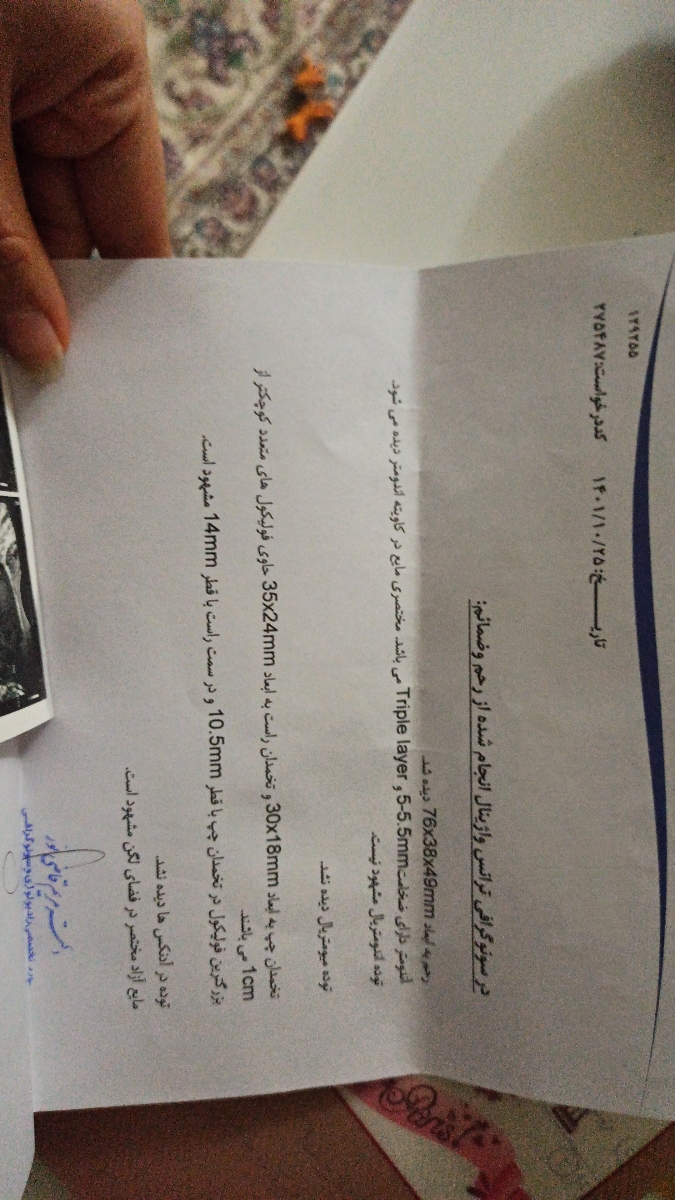 ۱۲۹۲۵۵
کددرخواست:۲۷۵۴۸۷ تاریـــــخ: ۱۴۰۱/۱۰/۲۵
در سونوگرافی ترانس واژینال انجام شده از رحم وضمائم:
رحم به ابعاد 76x38x49mm دیده شد.
اندومتر دارای ضخامت5-5.5mm و Triple layer می باشد. مختصری مایع در کاویته اندومتر دیده می شود.
توده اندومتریال مشهود نیست.
توده میومتریال دیده نشد.
تخمدان چپ به ابعاد 30x18mm و تخمدان راست به ابعاد 35x24mm حاوی فولیکول های متعدد کوچکتر از
1cm می باشند.
بزرگترین فولیکول در تخمدان چپ با قطر 10.5mm و در سمت راست با قطر 14mm مشهود است.
توده در آدنکس ها دیده نشد.
مایع آزاد مختصر در فضای لگن مشهود است.
دکتر مریم
Paris